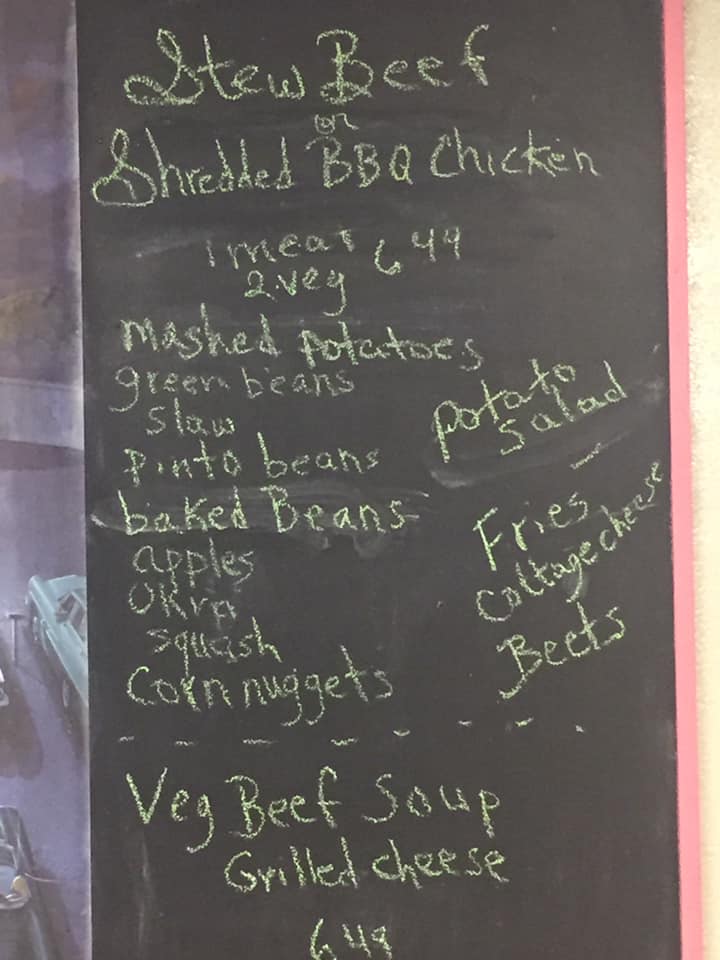 Stew Beef
or
Shredded BBQ Chicken
1 meat 6 49
2 veg
mashed potatoes
green beans
slaw
pinto beans
baked Beans
apples
OKra
squash
Corn nuggets
potato
salad
Fries
Cottage cheese
Beets
Veg Beef Soup
Grilled cheese
6 49